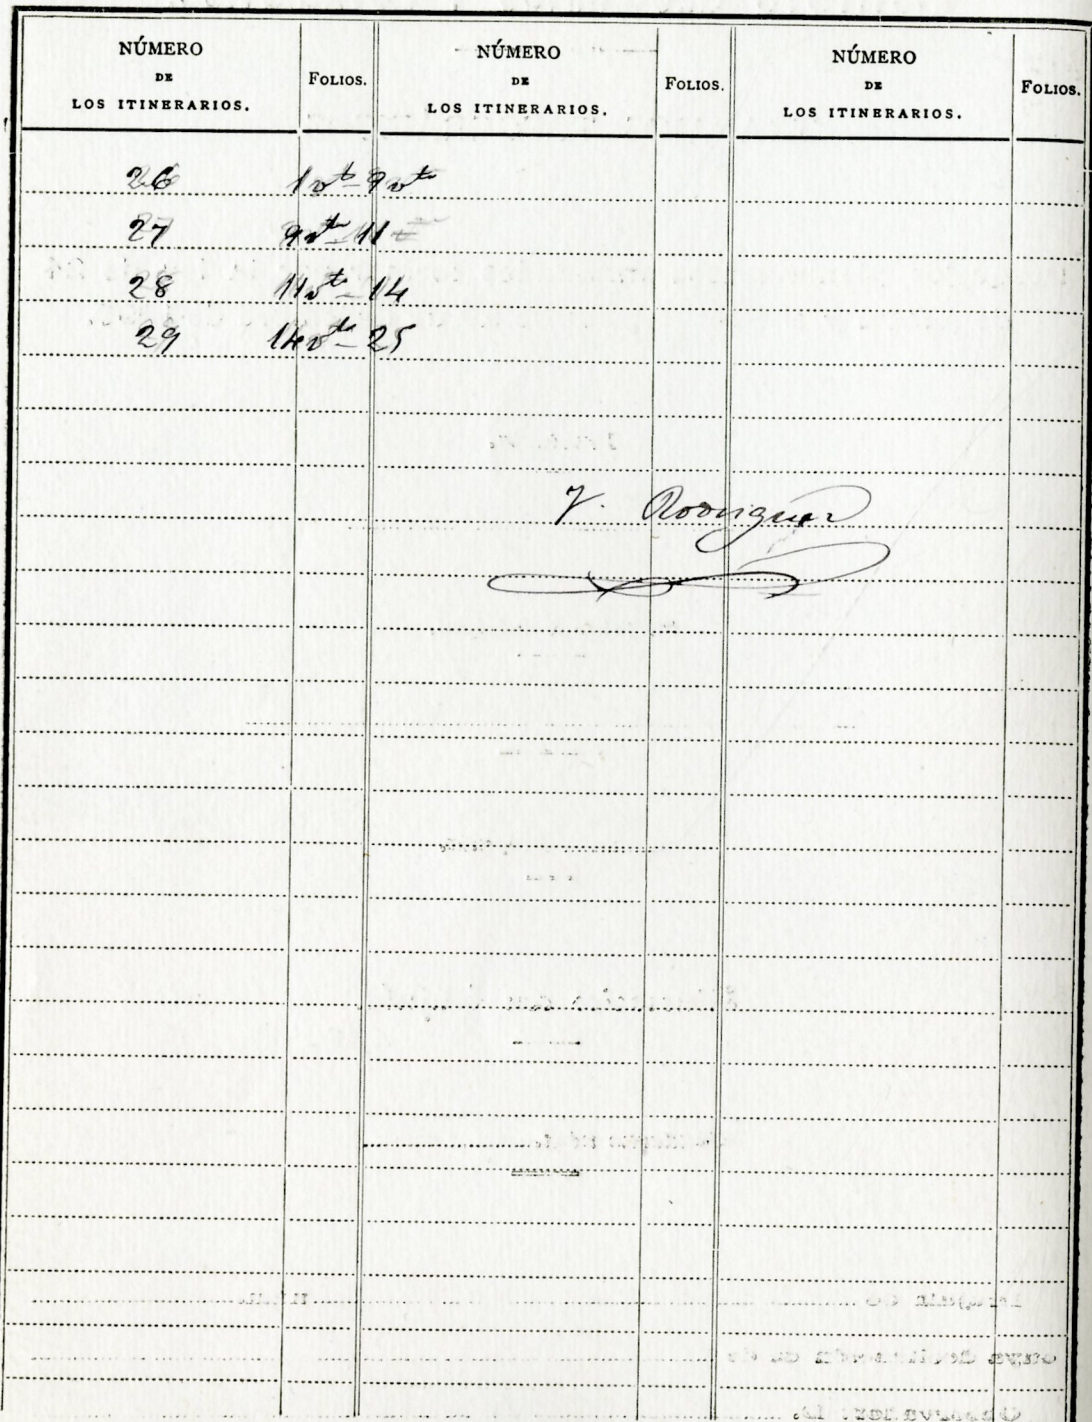 NÚMERO
DE
LOS ITINERARIOS.
FOLIOS.
NÚMERO
DE
LOS ITINERARIOS.
FOLIOS.
NÚMERO
DE
LOS ITINERARIOS.
FOLIOS.
26 1 vto - 9 vto
27 9 vto - 11
28 11 vto - 14
29 14 vto - 25
V. Rodriguez